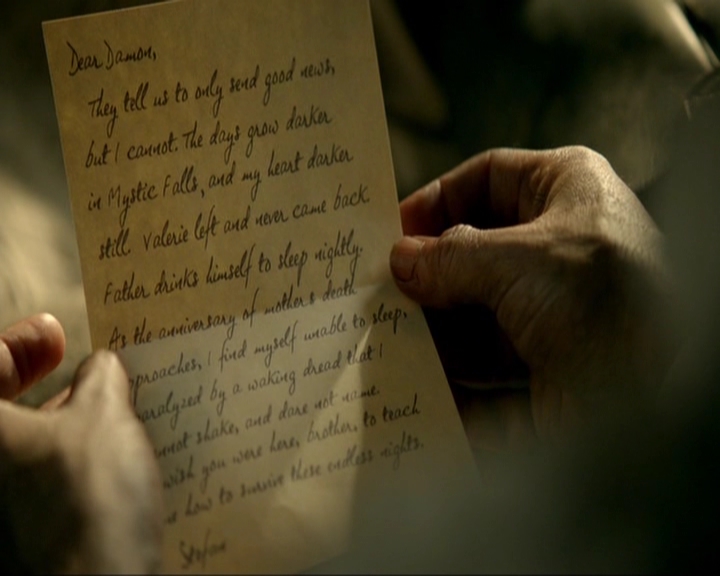 Dear Damon,
They tell us to only send good news,
but I cannot. The days grow darker
in Mystic Falls, and my heart darker
still. Valerie left and never came back.
Father drinks himself to sleep nightly.
As the anniversary of mother's death
pproaches, I find myself unable to sleep,
aralyzed by a waking dread that I
nnot shake, and dare not name.
wish you were here, brother, to teach
e how to survive these endless nights.
Stefan